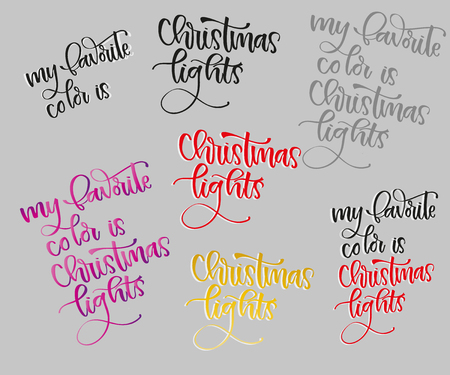 my favorite
color is
Christmas
lights
my favorite
color is
Christmas
lights
Christmas
lights
my favorite
color is
Christmas
lights
my favorite
color is
Christmas
lights
Christmas
lights